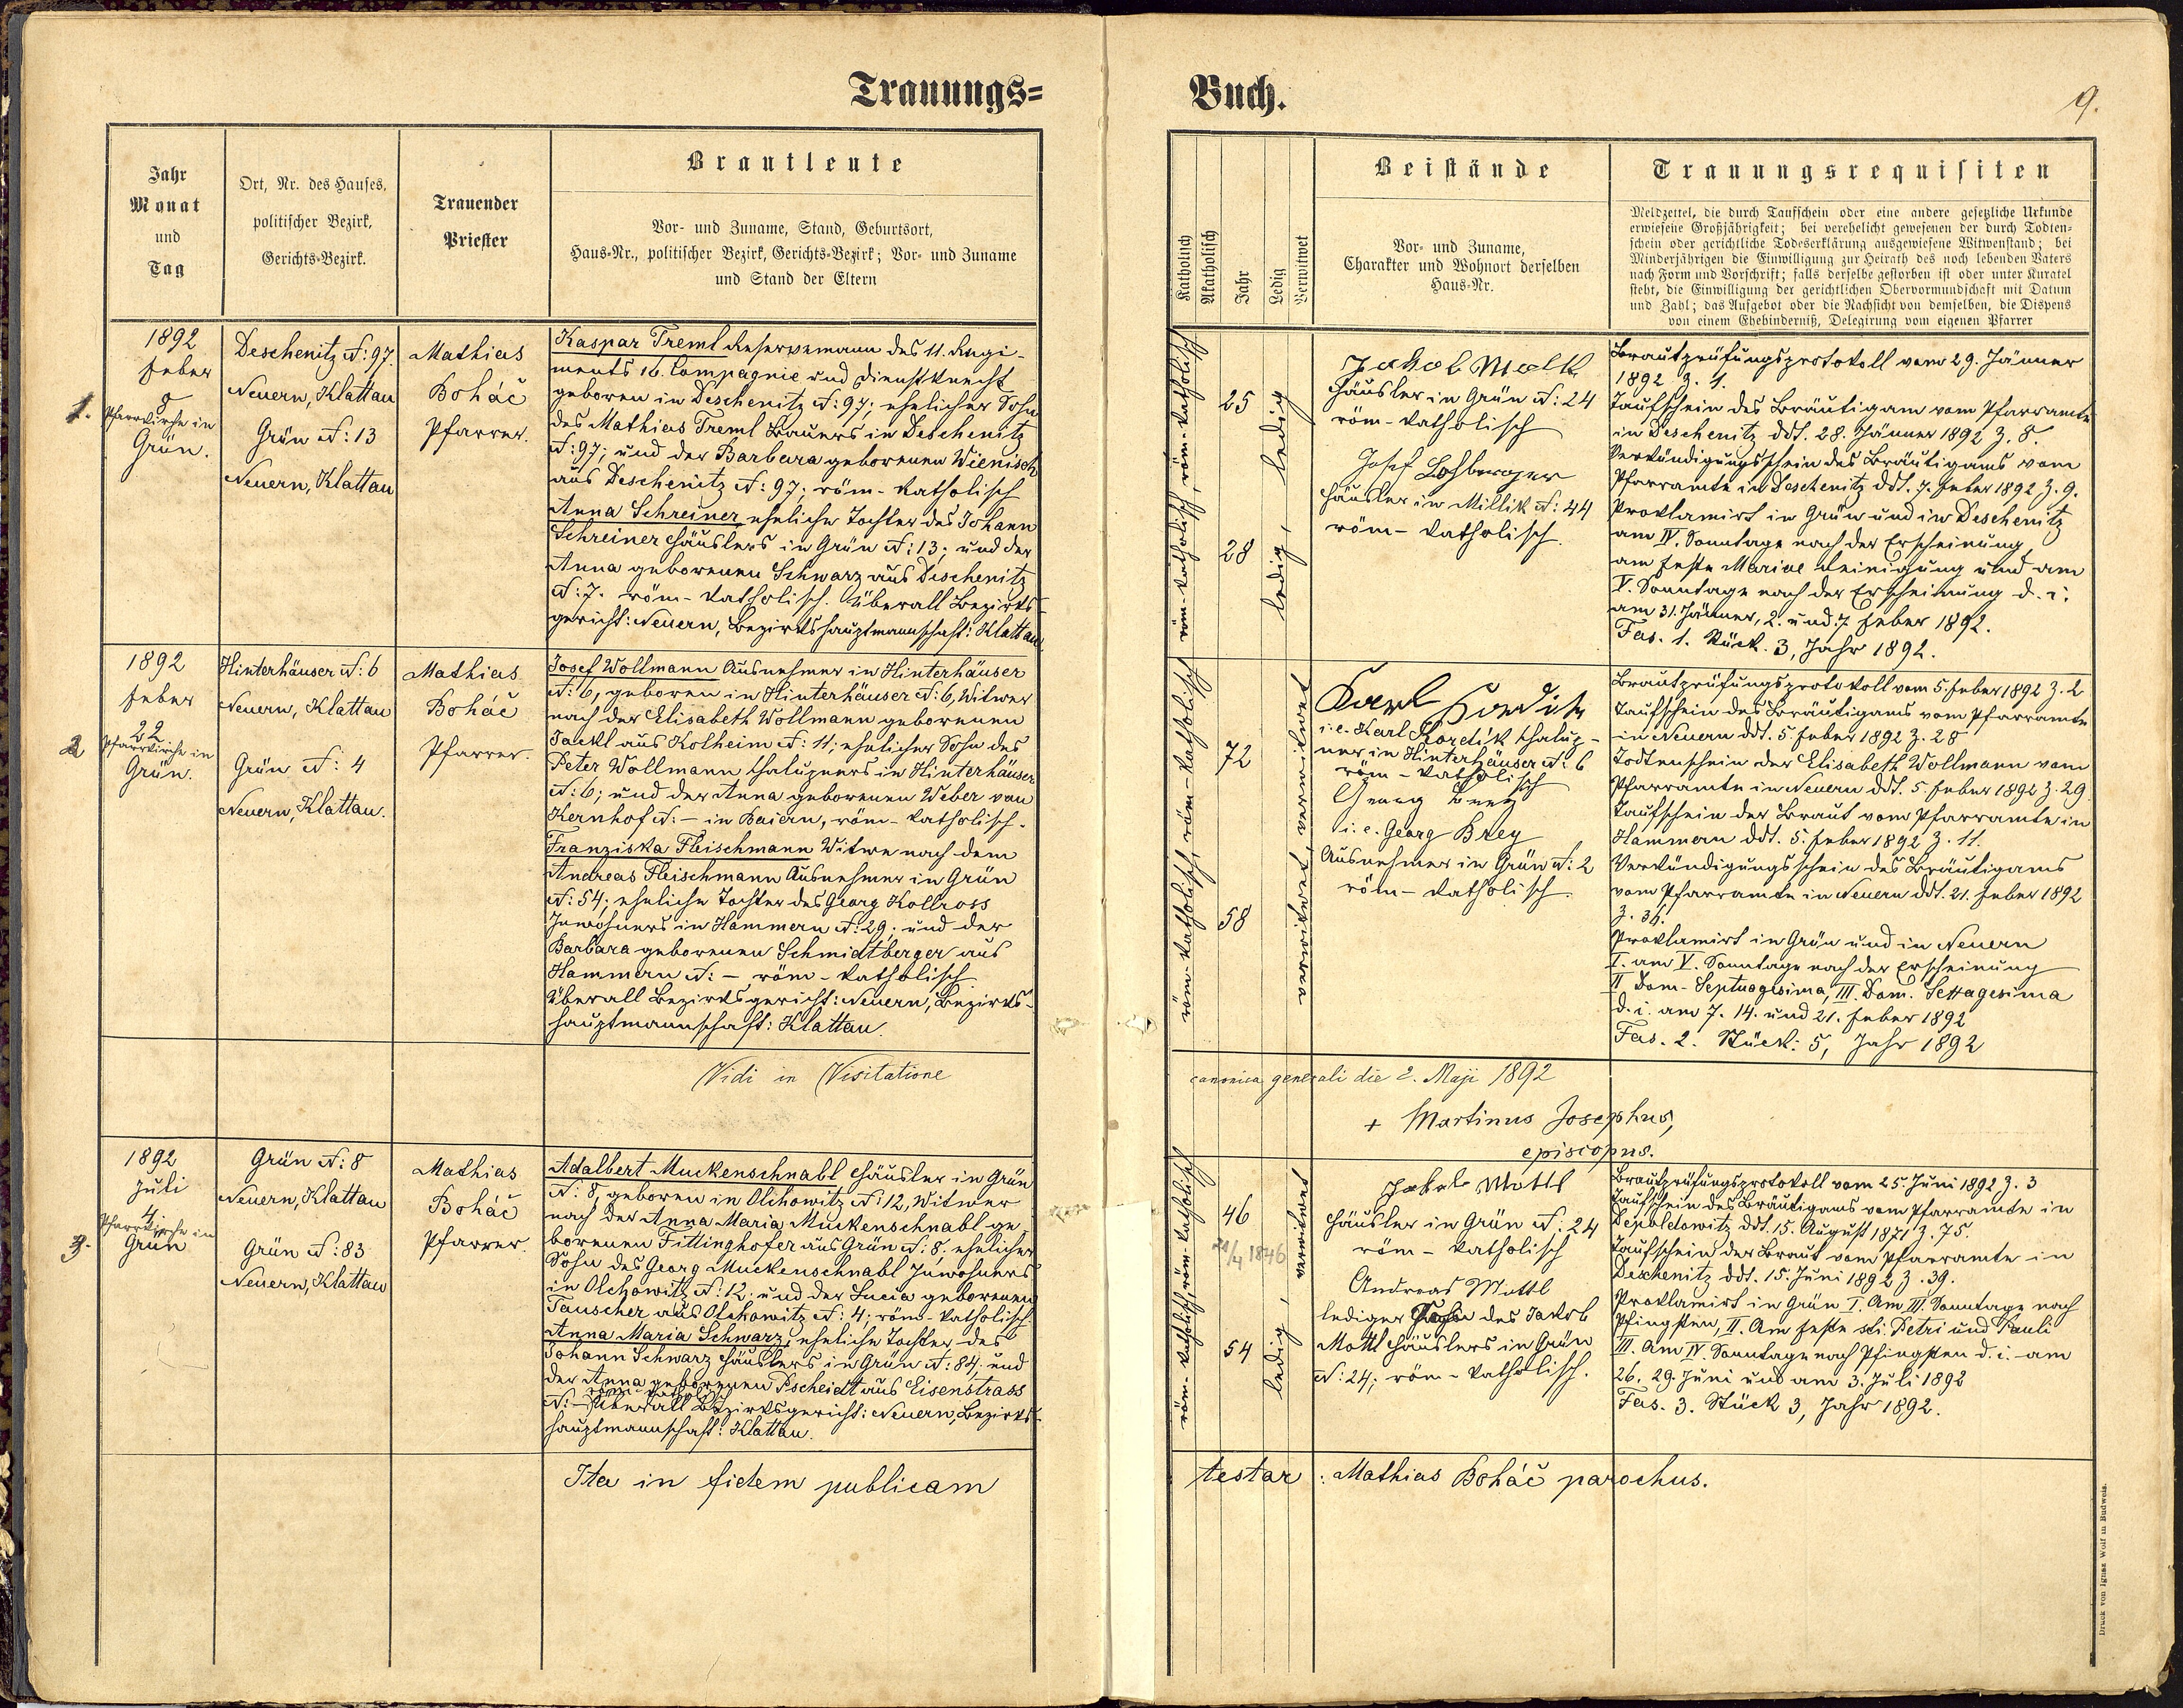 Trauungs=
Buch.
9.
Jahr
Monat
und
Tag
Ort, Nr. des Hauses,
politischer Bezirk,
Gerichts-Bezirk.
Trauender
Priester
Brautleute
Vor- und Zuname, Stand, Geburtsort,
Haus-Nr., politischer Bezirk, Gerichts-Bezirk; Vor- und Zuname
und Stand der Eltern
Katholisch
Akatholisch
Jahr
Ledig
Verwitwet
Beistände
Vor- und Zuname,
Charakter und Wohnort derselben
Haus-Nr.
Trauungsrequisiten
Meldzettel, die durch Taufschein oder eine andere gesetzliche Urkunde
erwiesene Großjährigkeit; bei verehelicht gewesenen der durch Todten-
schein oder gerichtliche Todeserklärung ausgewiesene Witwenstand; bei
Minderjährigen die Einwilligung zur Heirath des noch lebenden Vaters
nach Form und Vorschrift; falls derselbe gestorben ist oder unter Kuratel
steht, die Einwilligung der gerichtlichen Obervormundschaft mit Datum
und Zahl; das Aufgebot oder die Nachsicht von demselben, die Dispens
von einem Ehehinderniß, Delegirung vom eigenen Pfarrer
1.
1892
Feber
8
Pfarrkirche in
Grün.
Deschenitz N: 97.
Neuern, Klattau
Grün N: 13
Neuern, Klattau
Mathias
Boháč
Pfarrer.
Kaspar Treml Reservemann des 11. Regi-
ments 16. Compagnie und Dienstknecht
geboren in Deschenitz N: 97; ehelicher Sohn
des Mathias Treml Bauers in Deschenitz
N: 97; und der Barbara geborenen Wienisch
aus Deschenitz N: 97; röm-katholisch
Anna Schreiner eheliche Tochter des Johann
Schreiner Häuslers in Grün N: 13; und der
Anna geborenen Schwarz aus Deschenitz
N: 7. röm-katholisch. Überall Bezirks-
gericht: Neuern, Bezirkshauptmannschaft: Klattau
röm-katholisch, röm-katholisch
25
28
ledig, ledig
Jakob Mottl
Häusler in Grün N: 24
röm-katholisch
Josef
Häusler in Millik N: 44
röm-katholisch.
Brautprüfungsprotokoll vom 29. Jänner
1892 Z. 1.
Taufschein des Bräutigam vom Pfarramte
in Deschenitz ddt. 28. Jänner 1892 Z. 8.
Verkündigungsschein des Bräutigams vom
Pfarramte in Deschenitz ddt. 7. Feber 1892 Z. 9.
Proklamirt in Grün und in Deschenitz
am IV. Sonntage nach der Erscheinung
am Feste Mariae Reinigung und am
V. Sonntage nach der Erscheinung d. i.
am 31. Jänner, 2. und 7. Feber 1892.
Fas. 1. Stück. 3, Jahr 1892.
2
1892
Feber
22
Pfarrkirche in
Grün.
Hinterhäuser N: 6
Neuern, Klattau
Grün N: 4
Neuern, Klattau.
Mathias
Boháč
Pfarrer.
Josef Wollmann Ausnehmer in Hinterhäuser
N: 6, geboren in Hinterhäuser N: 6, Witwer
nach der Elisabeth Wollmann geborenen
Jackl aus Kolheim N: 11; ehelicher Sohn des
Peter Wollmann Chalupners in Hinterhäuser
N: 6; und der Anna geborenen Weber von
Kernhof N: – in Baiern, röm-katholisch.
Franziska Fleischmann Witwe nach dem
Andreas Fleischmann Ausnehmer in Grün
N: 54; eheliche Tochter des Georg Kollross
Inwohners in Hammern N: 29; und der
Barbara geborenen Schmidtberger aus
Hammern N: – röm-katholisch
Überall Bezirksgericht: Neuern, Bezirks-
hauptmannschaft: Klattau.
röm-katholisch, röm-katholisch
72
58
verwitwet, verwitwet
Karl Kordik
i.e. Karl Kordik Chalup-
ner in Hinterhäuser N: 6
röm-katholisch
Georg Brey
i.e. Georg Brey
Ausnehmer in Grün N: 2
röm-katholisch.
Brautprüfungsprotokoll vom 5. Feber 1892 Z. 2
Taufschein des Bräutigams vom Pfarramte
in Neuern ddt. 5 Feber 1892 Z. 28
Todtenschein der Elisabeth Wollmann vom
Pfarramte in Neuern ddt. 5. Feber 1892 Z. 29
Taufschein der Braut vom Pfarramte in
Hammern ddt. 5. Feber 1892 Z. 11.
Verkündigungsschein des Bräutigams
vom Pfarramte in Neuern ddt. 21. Feber 1892
Z. 34.
Proklamirt in Grün und in Neuern
I. am V. Sonntage nach der Erscheinung
II Dom. Septuagesima, III. Dom. Sexagesima
d. i. am 7. 14. und 21. Feber 1892
Fas. 2. Stück: 5, Jahr 1892
Vidi in Visitatione
canonica generali die 2. Maji 1892
+ Martinus Josephus,
episcopus.
3.
1892
Juli
4.
Pfarrkirche in
Grün
Grün N: 8
Neuern, Klattau
Grün N: 83
Neuern, Klattau
Mathias
Boháč
Pfarrer.
Adalbert Muckenschnabl Häusler in Grün
N: 8, geboren in Olchowitz N: 12, Witwer
nach der Anna Maria Muckenschnabl ge-
borenen Fittinghofer aus Grün N: 8; ehelicher
Sohn des Georg Muckenschnabl Inwohners
in Olchowitz N: 12; und der Lucia geborenen
Tauscher aus Olchowitz N: 4; röm-katholisch.
Anna Maria Schwarz, eheliche Tochter des
Johann Schwarz Häuslers in Grün N: 84, und
der Anna geborenen Pscheidt aus Eisenstrass
röm-katholisch
N: – Überall Bezirksgericht: Neuern, Bezirks-
hauptmannschaft: Klattau.
röm-katholisch, röm-katholisch
46
1846
54
ledig, verwitwet
Jakob Mottl
Häusler in Grün N: 24
röm-katholisch
Andreas Mottl
lediger Sohn des Jakob
Mottl Häuslers in Grün
N: 24; röm-katholisch.
Brautprüfungsprotokoll vom 25. Juni 1892 Z. 3
Taufschein des Bräutigams vom Pfarramte in
Depoldowitz ddt. 15. August 1871 Z. 75.
Taufschein der Braut vom Pfarramte in
Deschenitz ddt. 15. Juni 1892 Z. 39.
Proklamirt in Grün I. Am III. Sonntage nach
Pfingsten, II. Am Feste sti. Petri und Pauli
III. Am IV. Sonntage nach Pfingsten d. i. am
26. 29. Juni und am 3. Juli 1892
Fas. 3. Stück 3, Jahr 1892.
Ita in fidem publicam
testar: Mathias Boháč parochus.
Druck von Ignaz Wolf in Budweis.